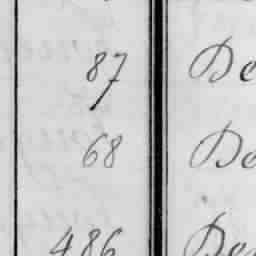 87 De
68 De
486 De